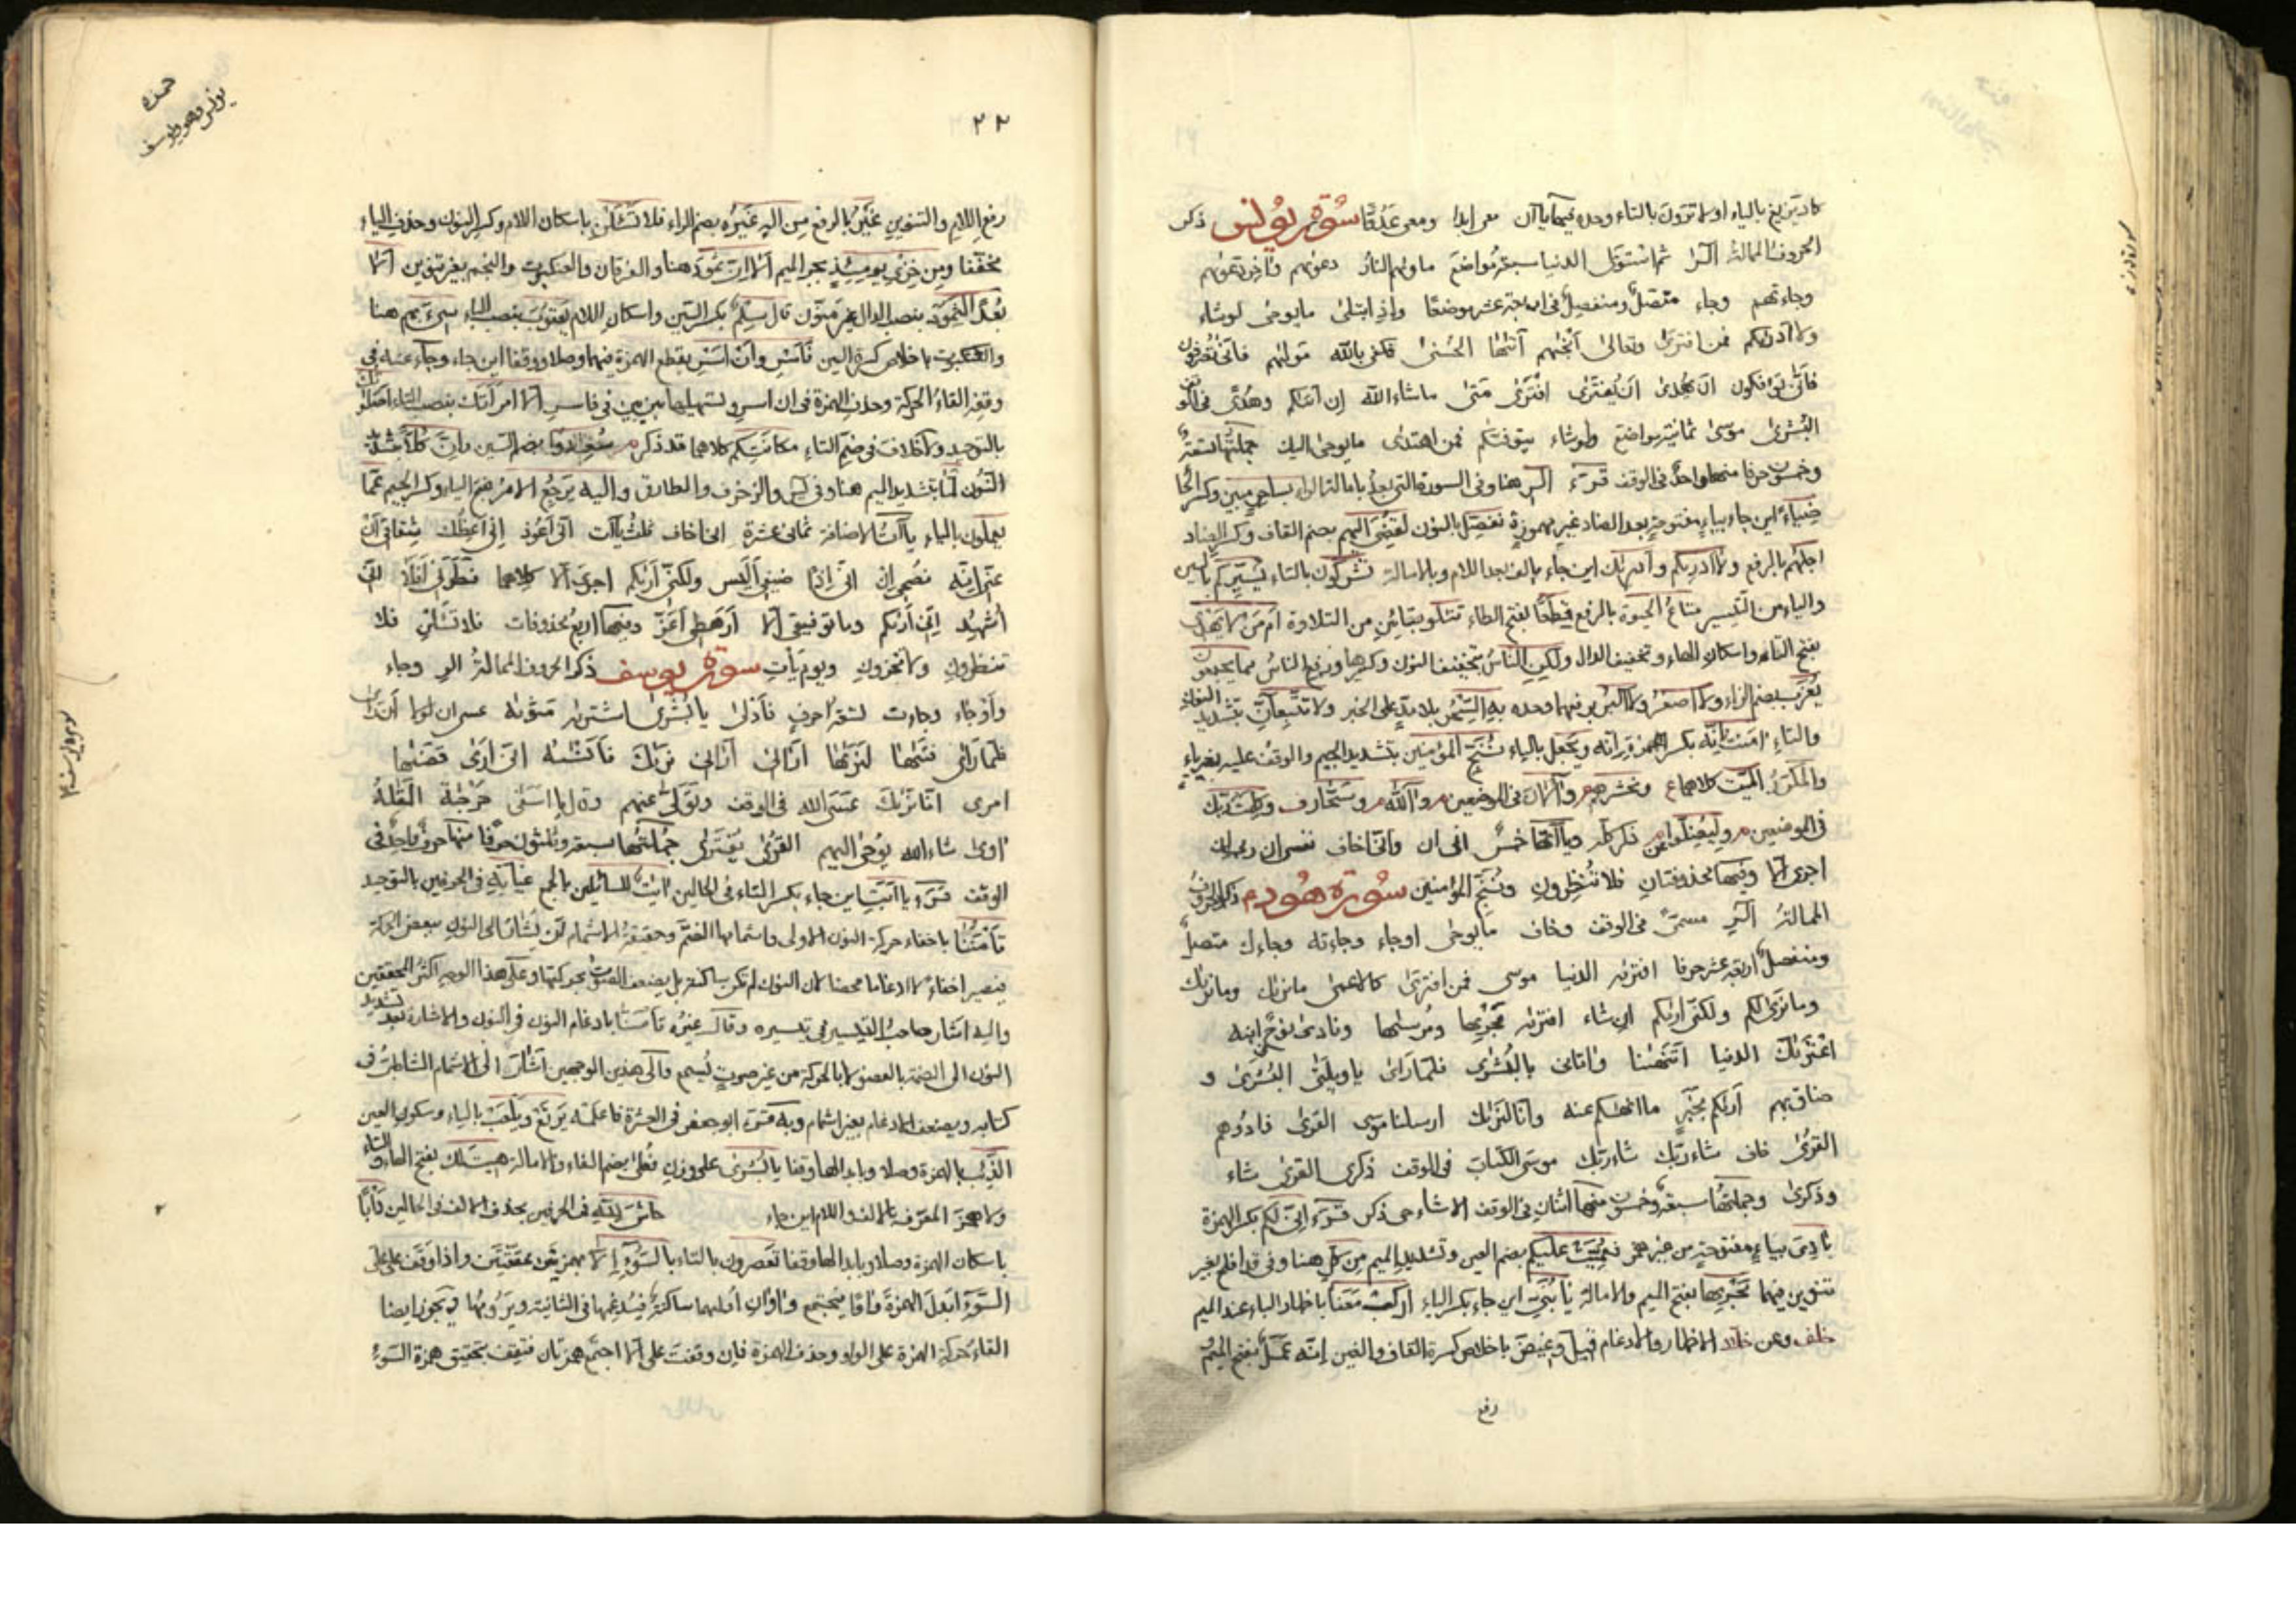 كاد تزيغ بالياء اولا ترون بالتاء وحده فيها ياآن معى ابدا ومعى عدوا سورة يونس ذكر
الحروف الممالة الر ثم استوى الدنيا سبعة مواضع ماويهم النار دعويهم وآخر دعويهم
وجاءتهم وجاء متصل ومنفصل فى اربعة عشر موضعا واذا تتلى مايوحى لوشاء
ولا ادريكم فمن افترى وتعالى انجيهم اتيها الحسنى فكفى بالله موليهم فانى تصرفون
فانى تؤفكون ان يهدى ان يفترى افترى متى ماشاء الله ان اتيكم وهدى فى الوقف
البشرى موسى ثمانية مواضع ولوشاء يتوفيكم فمن اهتدى مايوحى اليك جملتها تسعة
وخمسون حرفا منها واحد فى الوقف قرء الر هنا وفى السورة التى بعد بامالة الراء لساحر مبين وكسر الحا
ضياء اين جاء بياء مفتوحة بعد الضاد غير مهموزة نفصل بالنون لقضى اليهم بضم القاف وكسر الضاد
اجلهم بالرفع ولا ادريكم وادريك اين جاء بالف بعد اللام وبالامالة تشركون بالتاء يسيركم بالسين
والياء من التيسير متاع الحيوة بالرفع قطعا بفتح الطاء تتلو بتائين من التلاوة امن لا يهدى
بفتح الياء واسكان الهاء وتخفيف الدال ولكن الناس بتخفيف النون وكسرها ورفع الناس مما يجمعون
يعزب بضم الزاء ولا اصغر ولا اكبر برفعهما وحده به السحر بلا مد على الخبر ولا تتبعان بتشديد النون
والتاء امنت انه بكسر الهمزة وانه ويجعل بالياء ننج المؤمنين بتشديد الجيم والوقف عليه بغير ياء
فى الموضعين وليضلوا عن ذكر كله وياآتها خمس انى ان وانى اخاف نفسى ان وربى انه
اجرى الا وفيها محذوفتان فلا تنظرون وننج المؤمنين سورة هود ذكر الحروف
الممالة الر مسمى فى الوقف وخاف مايوحى اوجاء وجاءته وجاءك متصل
ومنفصل اربعة عشر حرفا افتريه الدنيا موسى فمن افترى كالاعمى مانريك ومانريك
ومانرى لكم ولكنى اريكم ان شاء افتريه مجريها ومرسيها ونادى نوح ابنه
اعتريك الدنيا اتنهينا واتانى بالبشرى فلما راى ياويلتى البشرى و
ضاق بهم اريكم بخير ما انهيكم عنه وانا لنريك ارسلنا موسى القرى فادوهم
القرى خاف شاء ربك شاء ربك موسى الكتاب فى الوقف ذكرى القرى شاء
وذكرى وجملتها سبعة وخمسون منها اثنان فى الوقف الا شاء حى ذكر قرء انى لكم بكسر الهمزة
بادى بياء مفتوحة من غير همز فعميت عليكم بضم العين وتشديد الميم من كل هنا وفى قد افلح بغير
تنوين فيهما مجريها بفتح الميم والامالة يا بنى اين جاء بكسر الياء اركب معنا باظهار الباء عند الميم
خلف وعن خلاد الاظهار والادغام قيل وغيض باخلاص كسرة القاف والغين انه عمل بفتح الميم
رفع
٢٢
حمزه
يونس وهود ويوسف
رفع اللام والتنوين غير بالرفع من اله غيره بضم الراء فلا تسئلن باسكان اللام وكسر النون وحذف الياء
مخففا ومن خزى يومئذ بجر الميم الا ان ثمود هنا والفرقان والعنكبوت والنجم بغير تنوين الا
بعدا لثمود بنصب الدال غير منون قال سلم بكسر السين واسكان اللام يعقوب بنصب الباء سىء بهم هنا
والعنكبوت باخلاص كسرة السين فاسر وان اسر بقطع الهمزة فيهما وصلا ووقفا اين جاء وجاء عنه فى
وقفه القاء الحركة وحذف الهمزة فى ان اسر وتسهيلها بين بين فى فاسر الا امراتك بنصب التاء اصلوتك
بالتوحيد ولا خلاف فى ضم التاء مكانتكم كلاهما قد ذكر سعدوا بضم السين وان كلا مشدد
النون لما بتشديد الميم هنا وفى يس والزخرف والطارق واليه يرجع الامر بفتح الياء وكسر الجيم عما
يعملون بالياء ياآت الاضافة ثمانى عشرة انى اخاف ثلث ياآت انى اعوذ انى اعظك شقاقى ان
عنى انه نصحى ان انى اذا ضيفى اليس ولكنى اريكم اجرى الا كلاهما فطرنى افلا انى
اشهد انى اريكم وما توفيقى الا ارهطى اعز وفيها اربع محذوفات فلا تسئلن فلا
تنظرون ولا تخزون ويوم يأت سورة يوسف ذكر الحروف الممالة الر وجاء
واوجاء وجاءت تسعة احرف فادلى يا بشرى اشتريه مثويه عسى ان
فلما راى فتيها لنريها ارانى ارانى نريك فانسيه انى ارى قضيها
امرى انا نريك عسى الله فى الوقف وتولى عنهم وقال يا اسفى مزجة القيه
اوى شاء الله يوحى اليهم القرى يفترى جملتها سبعة وثلثون حرفا منها حرف واحد فى
الوقف قرء يا ابت اين جاء بكسر التاء فى الحالين ايت للسائلين بالجمع غيابة فى الحرفين بالتوحيد
تامننا باخفاء حركة النون الاولى واشمامها الضم وحقيقة الاشمام ان يشار الى النون ببعض الحركة
فيصير اخفاء لا ادغاما محضا لان النون لم تكن ساكنة بل يضعف الصوت بحركتها وعلى هذا الوجه اكثر المحققين
واليه اشار صاحب التيسير فى تيسيره وقال غيره تامنا بادغام النون فى النون والاشارة بعد تشديد
النون الى الضمة بالعضو لا بالحركة من غير صوت يسمع والى هذين الوجهين اشار الى الاشمام الشاطبى فى
كتابه ويضعف الادغام بغير اشمام وبه قرء ابو جعفر فى العشرة فاعلمه يرتع ويلعب بالياء وسكون العين
الذئب بالهمزة وصلا وبابدالها وقفا يا بشرى على وزن فعلى بضم الفاء والامالة هيت لك بفتح الهاء والتاء
ولا همز المعرف بالالف واللام اين جاء حاش لله فى الحرفين بحذف الالف فى الحالين دأبا
باسكان الهمزة وصلا وبابدالها وقفا تعصرون بالتاء بالسوء الا بهمزتين محققتين واذا وقف على
السوء ابدل الهمزة واوا فيجتمع واوان اوليهما ساكنة فيدغمها فى الثانية ويرومها ويجوز ايضا
القاء حركة الهمزة على الواو وحذف الهمزة فان وقفت على الا اجتمع همزتان فتقف بتحقيق همزة السوء